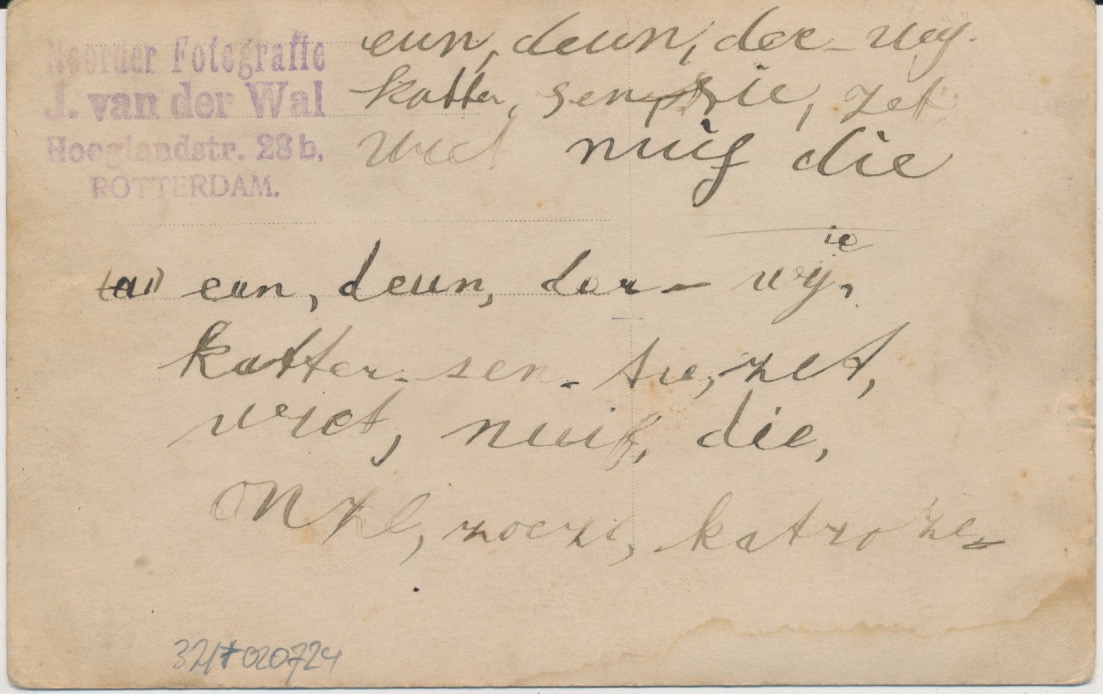 Noorder Fotografie
J. van der Wal
Hooglandstr. 28 b,
ROTTERDAM.
eun, deun, der - wij -
katter, sen, sie, zet
wiet nuif die
(a) eun, deun, dor - wij,
ie
katter - sen - sie, zet,
wiet, nuif, die,
onze, zoeze, katroze
32/*020724